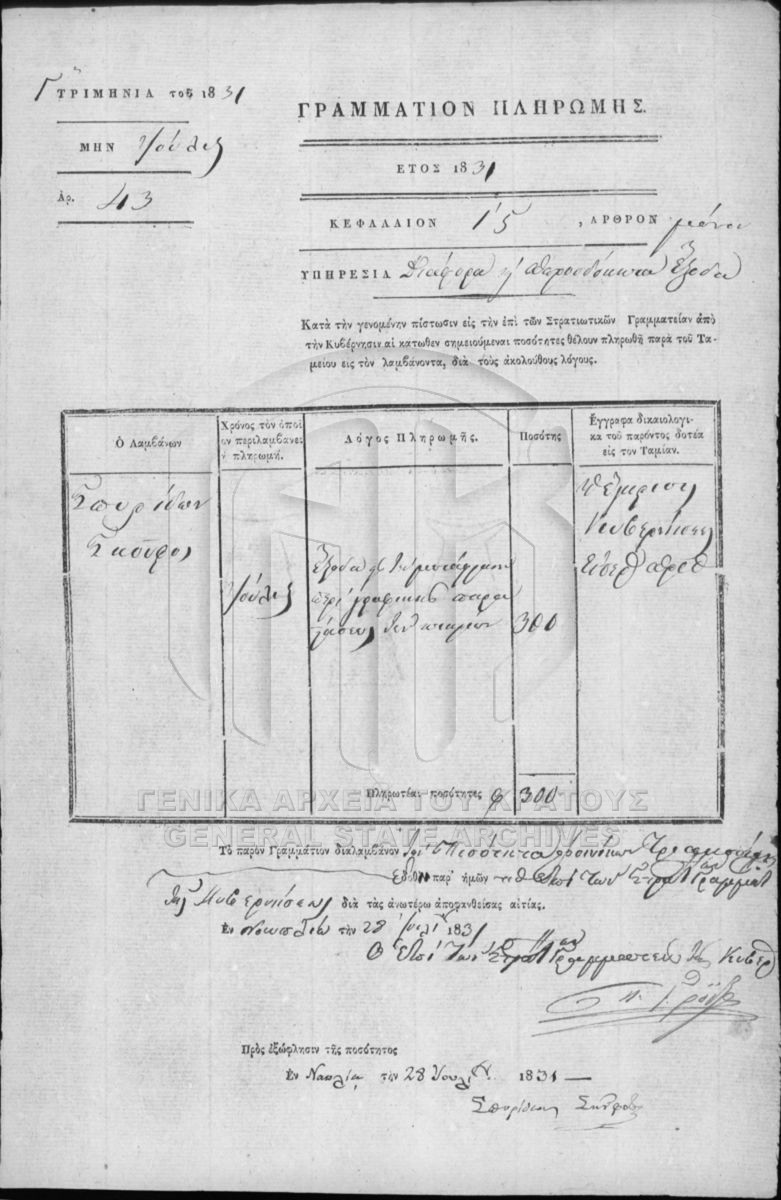 Γ ΤΡΙΜΗΝΙΑ τοῦ 1831
ΜΗΝ Ἰούλιος
Ἀρ. 43
ΓΡΑΜΜΑΤΙΟΝ ΠΛΗΡΩΜΗΣ.
ΕΤΟΣ 1831
ΚΕΦΑΛΑΙΟΝ 15, ΑΡΘΡΟΝ μόνον
ΥΠΗΡΕΣΙΑ Διάφορα ἢ ἀπροσδόκητα ἔξοδα
Κατὰ τὴν γενομένην πίστωσιν εἰς τὴν ἐπὶ τῶν Στρατιωτικῶν Γραμματείαν ἀπὸ
τὴν Κυβέρνησιν αἱ κάτωθεν σημειούμεναι ποσότητες θέλουν πληρωθῆ παρὰ τοῦ Τα-
μείου εἰς τὸν λαμβάνοντα, διὰ τοὺς ἀκολούθους λόγους.
Ὁ Λαμβάνων
Χρόνος τὸν ὁποῖ
ον περιλαμβάνει
ἡ πληρωμή.
Λόγος Πληρωμῆς.
Ποσότης
Ἔγγραφα δικαιολογι-
κὰ τοῦ παρόντος δοτέα
εἰς τὸν Ταμίαν.
Σπυρίδων
Σκοῦφος
Ἰούλιος
Ἔξοδα
περιγραφικῆς παρα
στάσεως
300
Κυβερνήσεως
Πληρωτέαι ποσότητες φ 300
ΓΕΝΙΚΑ ΑΡΧΕΙΑ ΤΟΥ ΚΡΑΤΟΥΣ
GENERAL STATE ARCHIVES
Τὸ παρὸν Γραμμάτιον διαλαμβάνον τὴν ποσότητα φοινίκων τριακοσίων
ἐδόθη παρ' ἡμῶν ἐπὶ τῶν Στρατ Γραμματ
τῆς Κυβερνήσεως διὰ τὰς ἀνωτέρω ἀποφανθείσας αἰτίας.
Ἐν Ναυπλίῳ τὴν 28 Ἰουλί 1831
Ὁ ἐπὶ τῶν Στρατ Γραμματεὺς τῆς Κυβερ
Π. Γ. Ρόδιος
Πρὸς ἐξώφλησιν τῆς ποσότητος
Ἐν Ναπλία τὴν 28 Ἰουλί 1831 —
Σπυρίδων Σκούφος